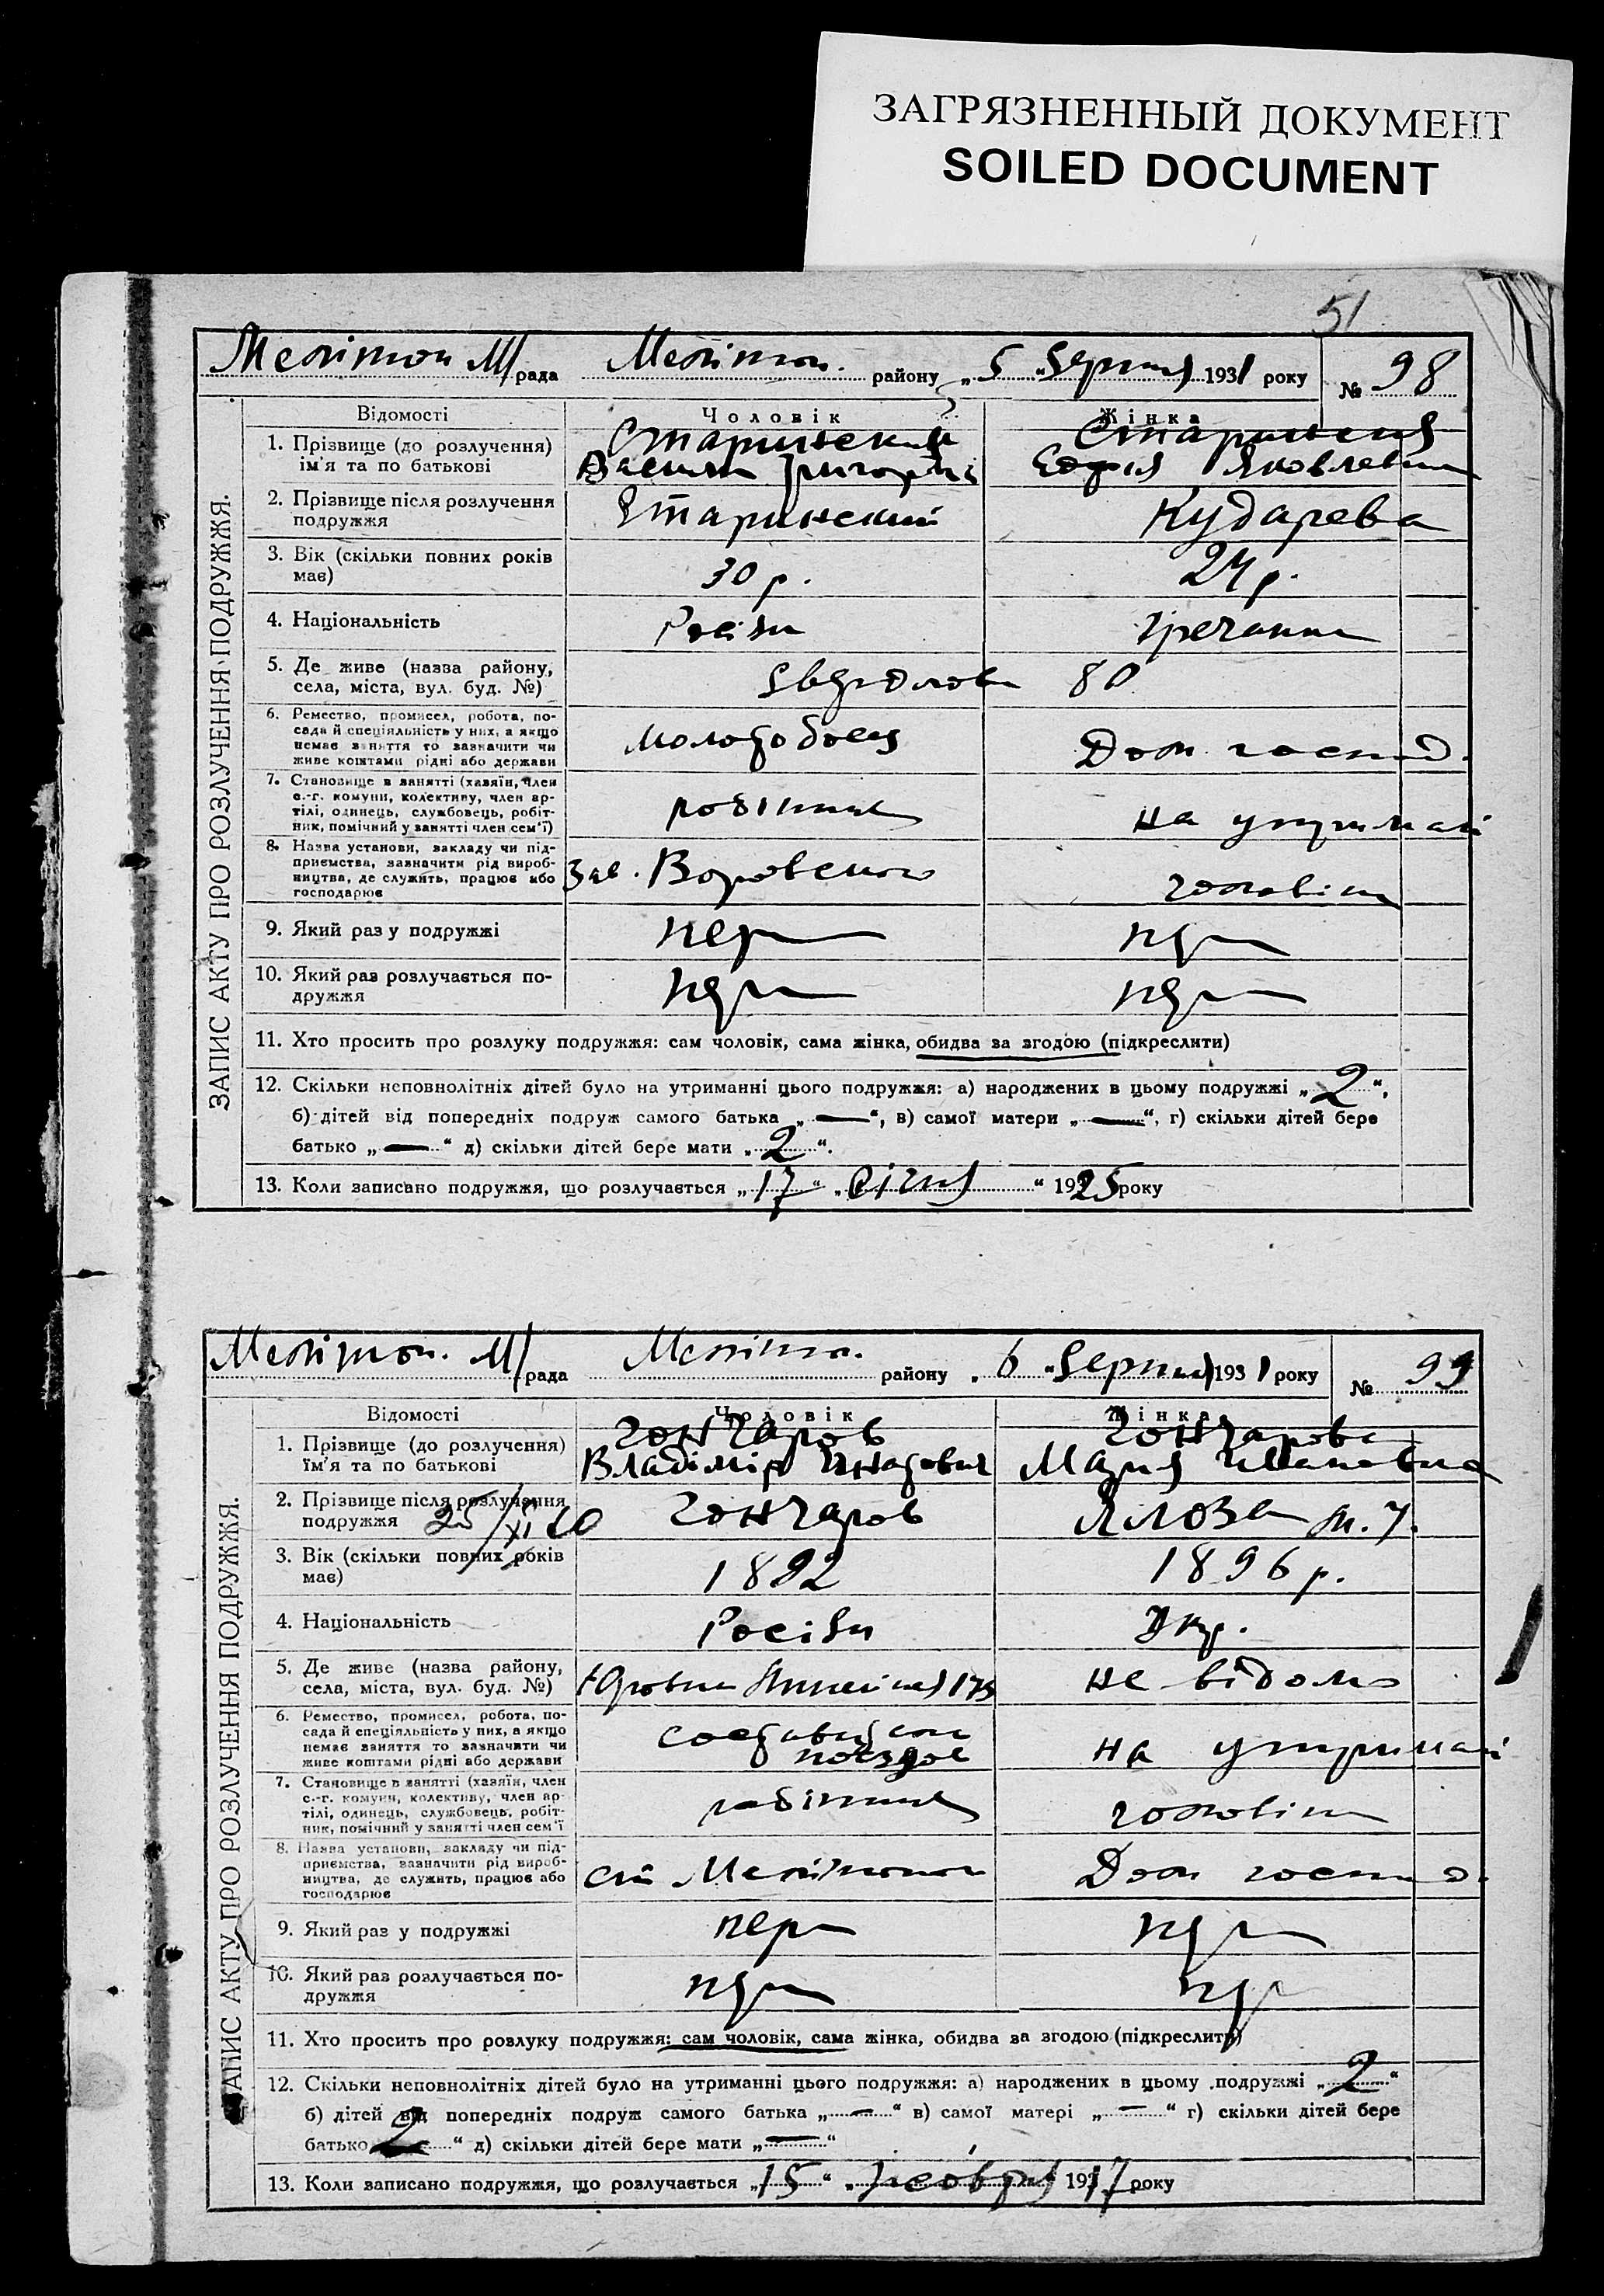 ЗАГРЯЗНЕННЫЙ ДОКУМЕНТ
SOILED DOCUMENT
51
Мелітоп М/рада Мелітоп. району „5 "Серпня 1931 року № 98
ЗАПИС АКТУ ПРО РОЗЛУЧЕННЯ ПОДРУЖЖЯ.
Відомості Чоловік Жінка
1. Прізвище (до розлучення) ім'я та по батькові
Старинский
Старинская
2. Прізвище після розлучення подружжя
Старинский
Кударева
3. Вік (скільки повних років має)
30 р.
24 р.
4. Національність
Росіян
Гречанка
5. Де живе (назва району, села, міста, вул. буд. №)
80
6. Ремество, промисел, робота, посада й спеціяльність у них, а якщо немає заняття то зазначити чи живе коштами рідні або держави
молотобоец
Дом. господ.
7. Становище в занятті (хазяїн, член с.-г. комуни, колективу, член артілі, одинець, службовець, робітник, помічний у занятті член сем'ї)
робітник
на утриман
8. Назва установи, закладу чи підприємства, зазначити рід виробництва, де служить, працює або господарює
Зав. Воровского
чоловіка
9. Який раз у подружжі
перш
перш
10. Який раз розлучається подружжя
перш
перш
11. Хто просить про розлуку подружжя: сам чоловік, сама жінка, обидва за згодою (підкреслити)
12. Скільки неповнолітніх дітей було на утриманні цього подружжя: а) народжених в цьому подружжі „2“,
б) дітей від попередніх подруж самого батька „—“, в) самої матери „—“, г) скільки дітей бере
батько „—“ д) скільки дітей бере мати „2“.
13. Коли записано подружжя, що розлучається „17“ „січня“ 1925 року
Мелітоп. М/рада Меліто. району „6 "Серпня 1931 року № 99
ЗАПИС АКТУ ПРО РОЗЛУЧЕННЯ ПОДРУЖЖЯ.
Відомості Чоловік Жінка
1. Прізвище (до розлучення) їм'я та по батькові
Гончаров
Владімір
Гончарова
Мария Ивановна
2. Прізвище після розлучення подружжя 25/XI 60
Гончаров
3. Вік (скільки повних років має)
1892
1896 р.
4. Національність
Росіян
Укр.
5. Де живе (назва району, села, міста, вул. буд. №)
не відомо
6. Ремество, промисел, робота, посада й спеціяльність у них, а якщо немає заняття то зазначити чи живе коштами рідні або держави
составител поездов
на утриман
7. Становище в занятті (хазяїн, член с.-г. комуни, колективу, член артілі, одинець, службовець, робітник, помічний у занятті член сем'ї
робітник
чоловіка
8. Назва установи, закладу чи підприємства, зазначити рід виробництва, де служить, працює або господарює
ст Мелітополь
Дом господ.
9. Який раз у подружжі
перш
перш
10. Який раз розлучається подружжя
перш
перш
11. Хто просить про розлуку подружжя: сам чоловік, сама жінка, обидва за згодою (підкреслити)
12. Скільки неповнолітніх дітей було на утриманні цього подружжя: а) народжених в цьому подружжі „2“
б) дітей від попередніх подруж самого батька „—“ в) самої матері „—“ г) скільки дітей бере
батько 2“ д) скільки дітей бере мати „—“
13. Коли записано подружжя, що розлучається „15“ 1917 року